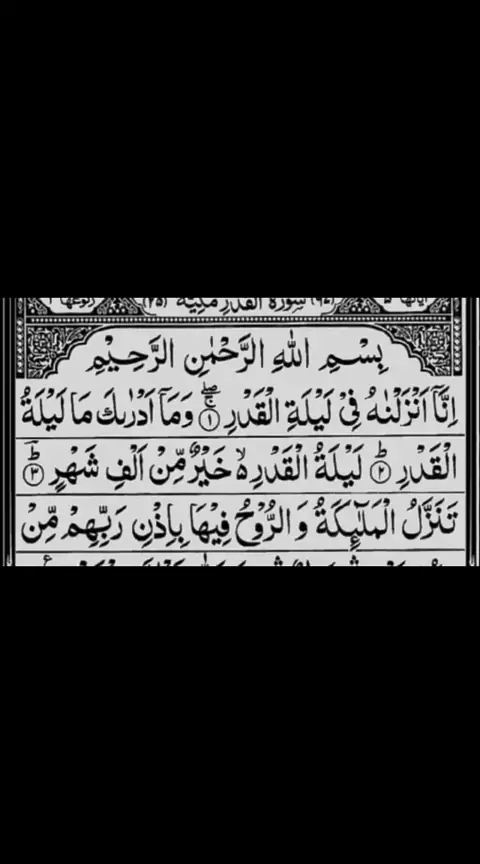 سُوْرَةُ الْقَدْرِ مَكِّيَّةٌ
بِسْمِ اللّٰهِ الرَّحْمٰنِ الرَّحِيْمِ
اِنَّاۤ اَنْزَلْنٰهُ فِيْ لَيْلَةِ الْقَدْرِ ۚۖ ﴿۱﴾ وَمَاۤ اَدْرٰىكَ مَا لَيْلَةُ
الْقَدْرِ ؕ ﴿۲﴾ لَيْلَةُ الْقَدْرِ ۙ خَيْرٌ مِّنْ اَلْفِ شَهْرٍ ؕؔ ﴿۳﴾
تَنَزَّلُ الْمَلٰٓئِكَةُ وَ الرُّوْحُ فِيْهَا بِاِذْنِ رَبِّهِمْ مِّنْ